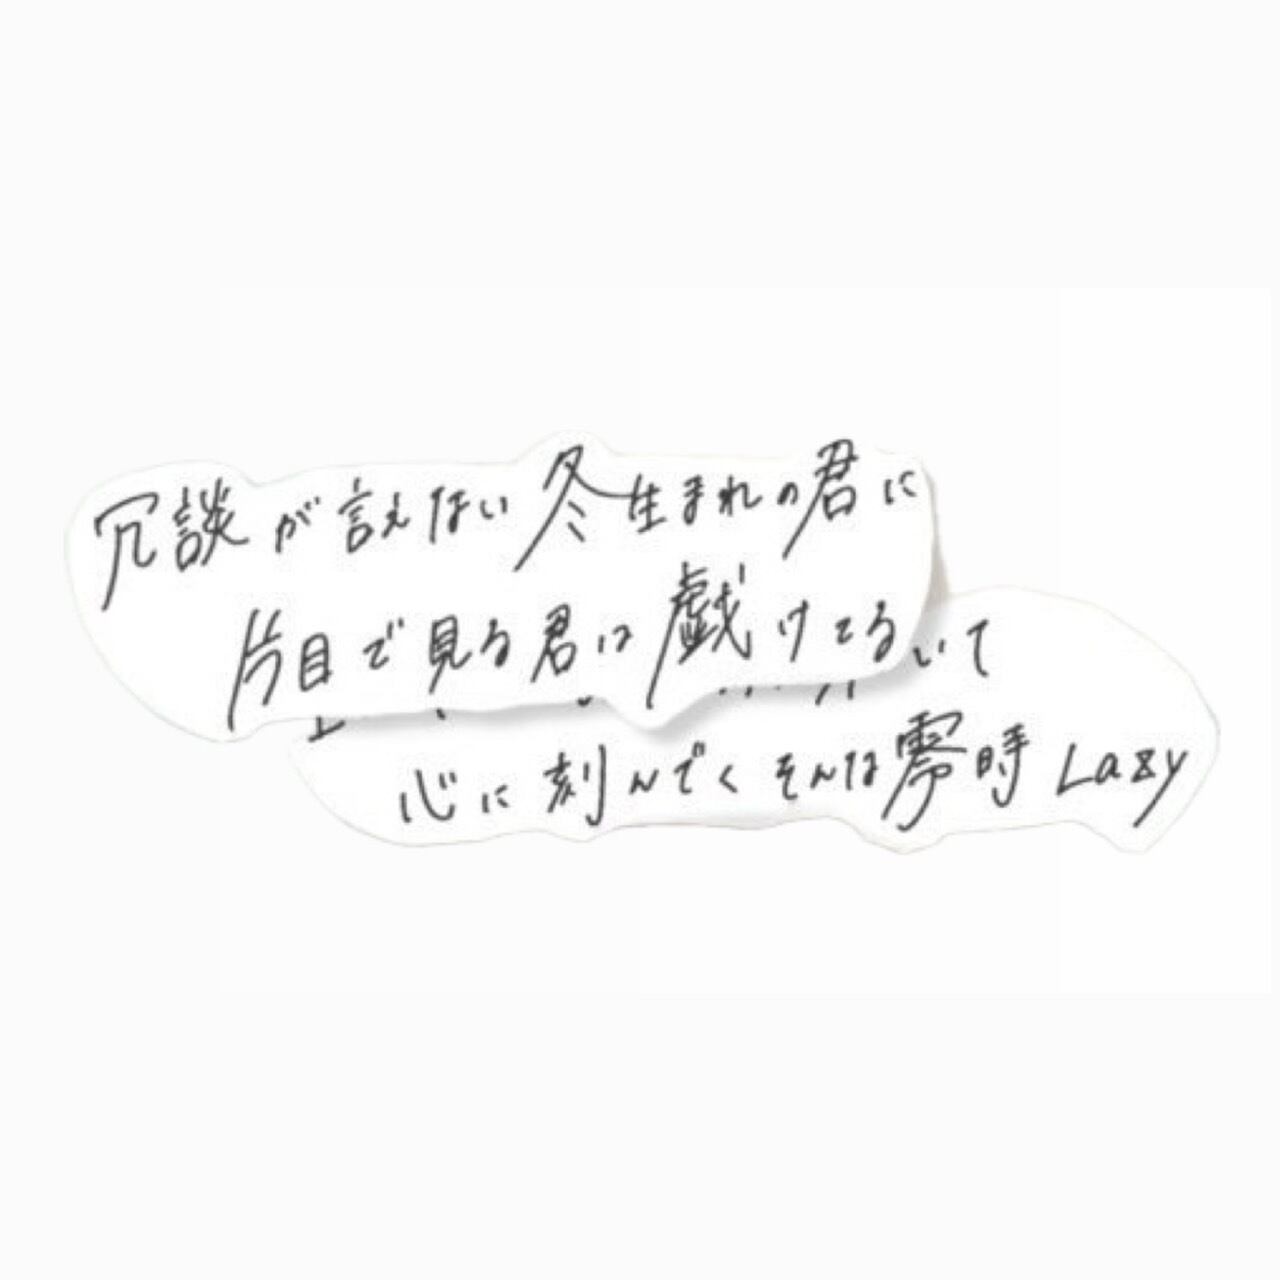 冗談が言えない冬生まれの君に
片目で見る君は戯けてる
いて
心に刻んでくそんな零時Lazy